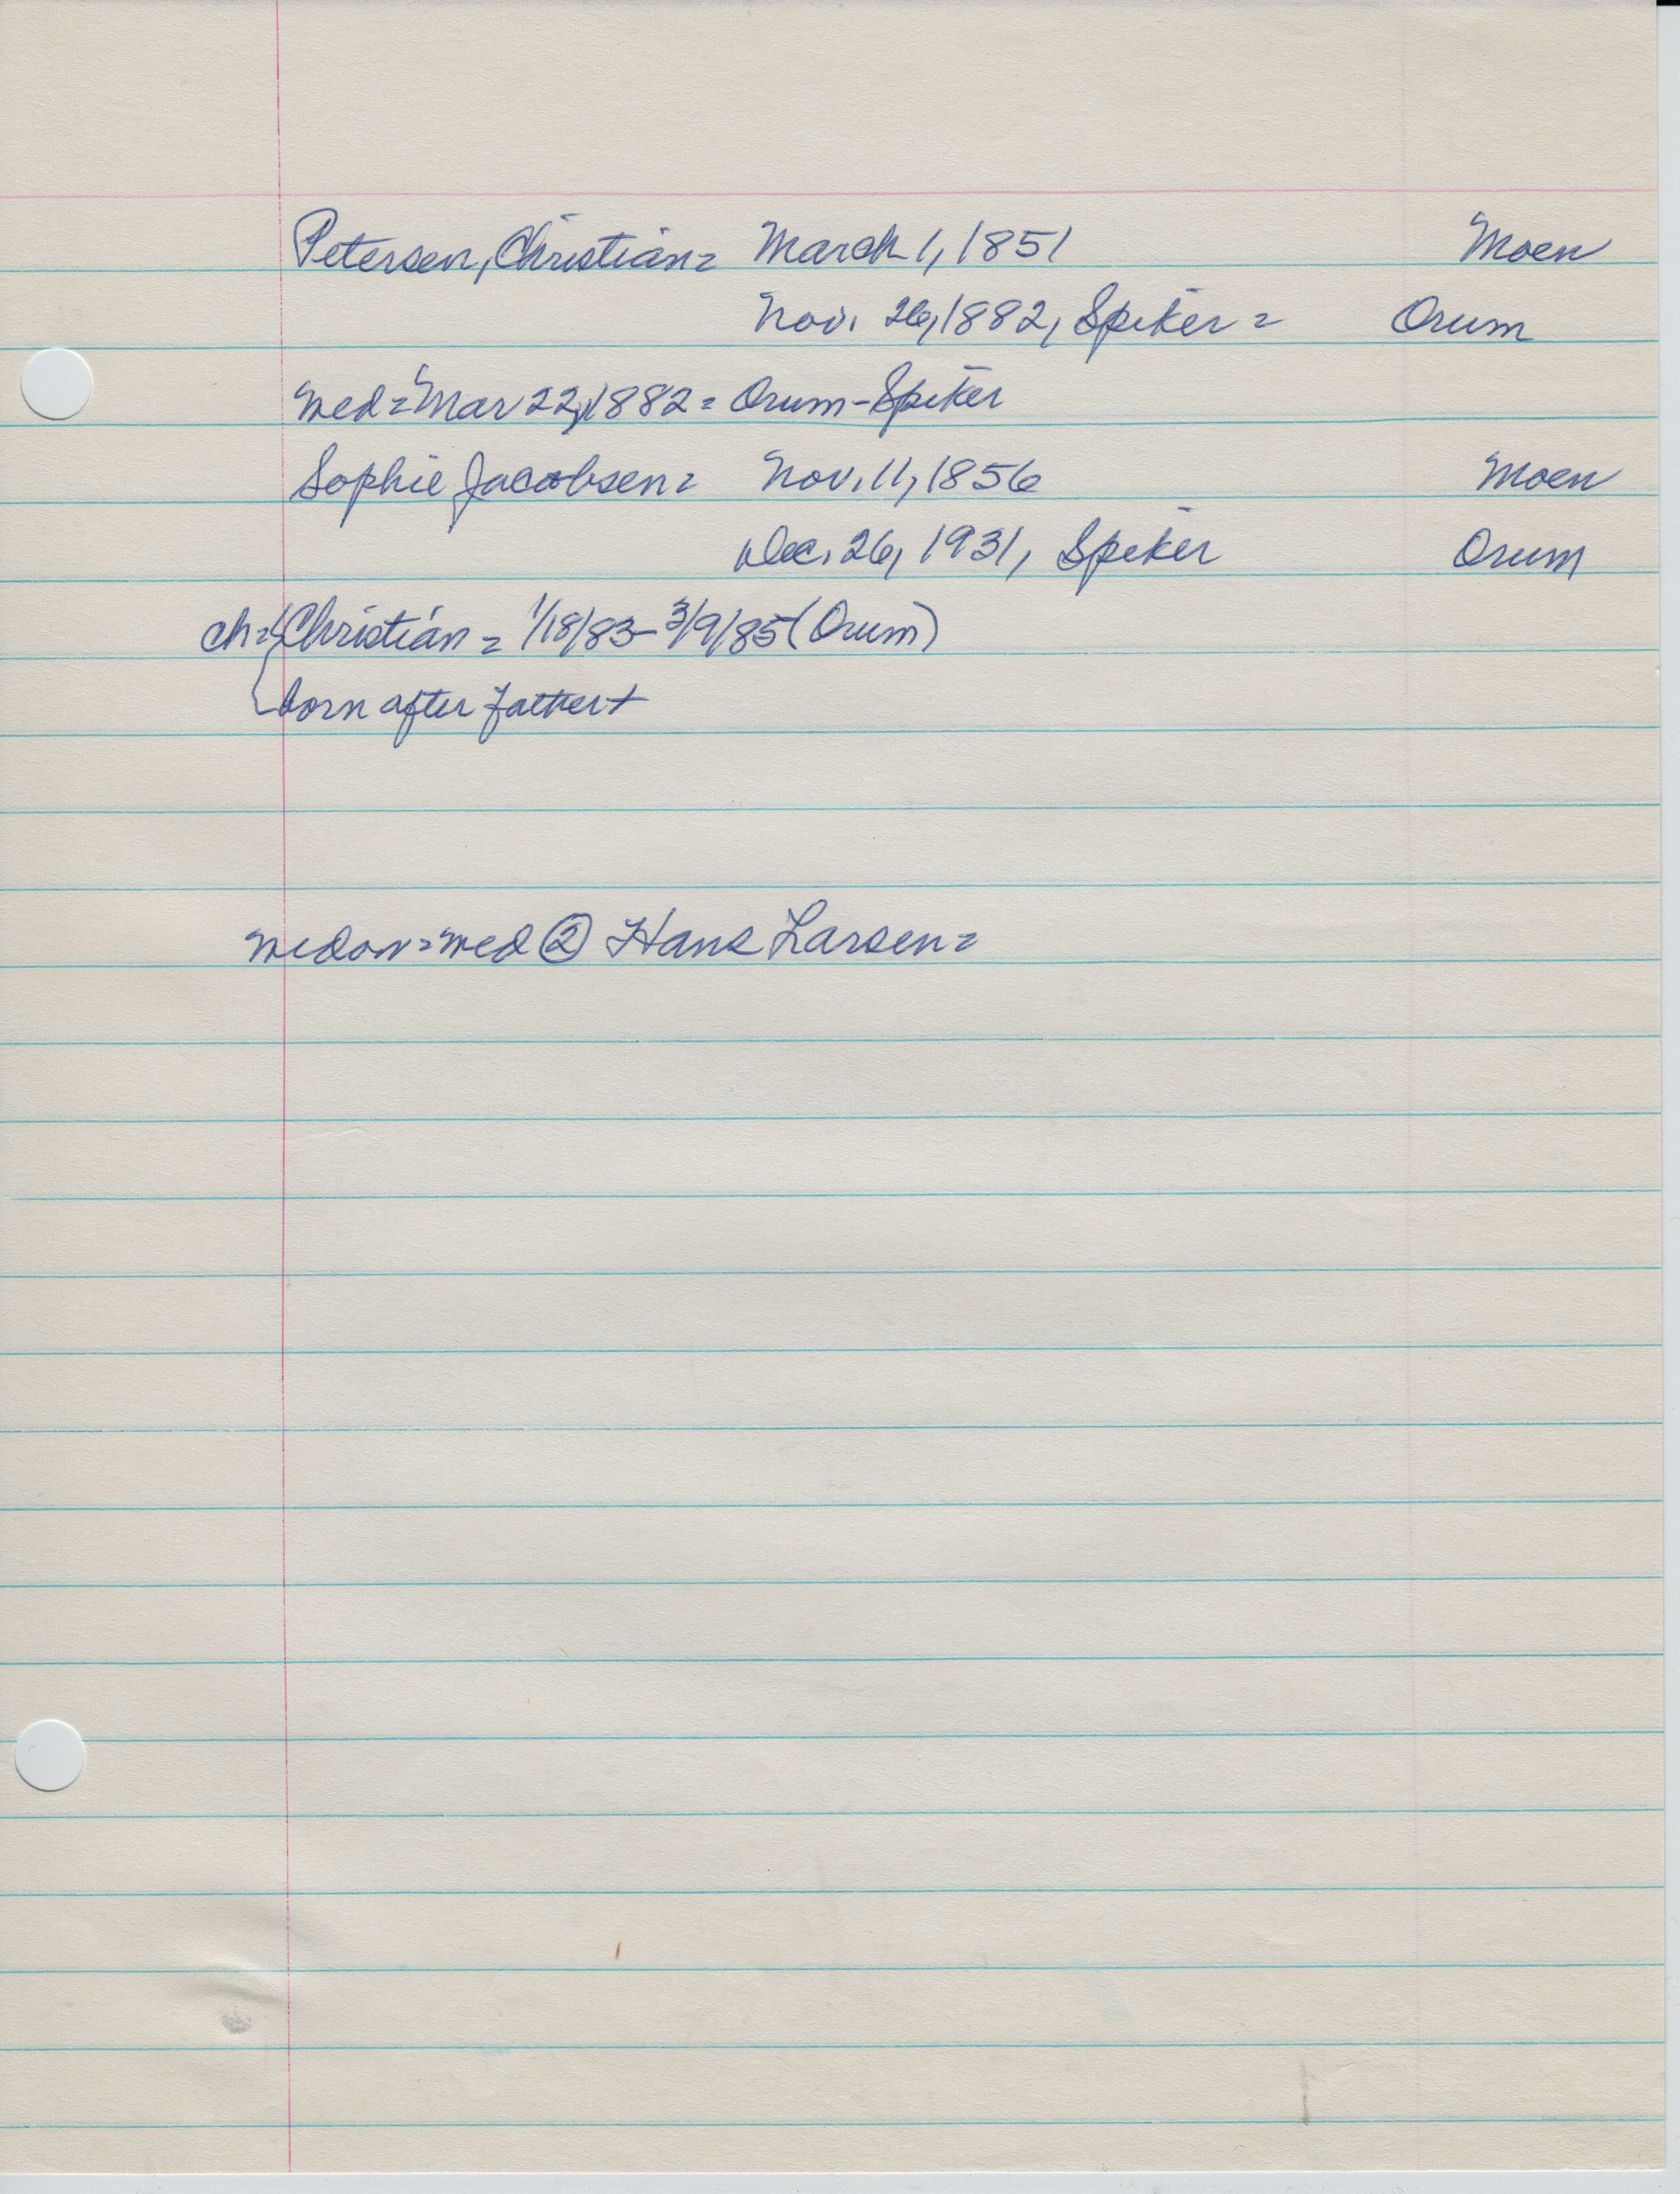 Petersen, Christian = March 1, 1851 Moen
Nov. 26, 1882, Spiker = Orum
wed = Mar 22, 1882 = Orum - Spiker
Sophie Jacobsen = Nov. 11, 1856 Moen
Dec. 26, 1931, Spiker Orum
ch = { Christian = 1/18/83 - 3/9/85 (Orum)
born after father +
widow = wed ② Hans Larsen =